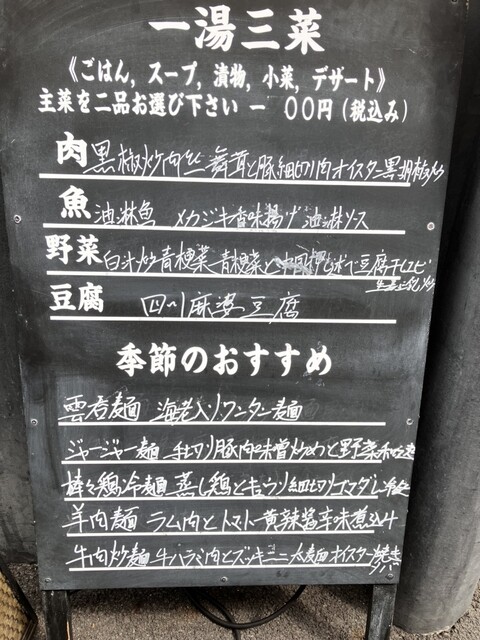 一湯三菜
《ごはん, スープ, 漬物, 小菜, デザート》
主菜を二品お選び下さい ー 00円(税込み)
肉 黒椒炒肉丝 舞茸と豚細切り肉オイスター黒胡椒炒
魚 油淋魚 メカジキ香味揚げ油淋ソース
野菜 白汁炒青梗菜 青梗菜と で豆腐干しエビ
豆腐 四川麻婆豆腐
季節のおすすめ
雲呑麺 海老入りワンタン麺
ジャージャー麺 手切り豚肉味噌炒めと野菜
棒々鶏冷麺 蒸し鶏とキュウリ細切りゴマダレ
羊肉麺 ラム肉とトマト黄辣醤辛味煮込み
牛肉炒麺 牛ハラミ肉とズッキーニ太麺オイスター焼きソバ